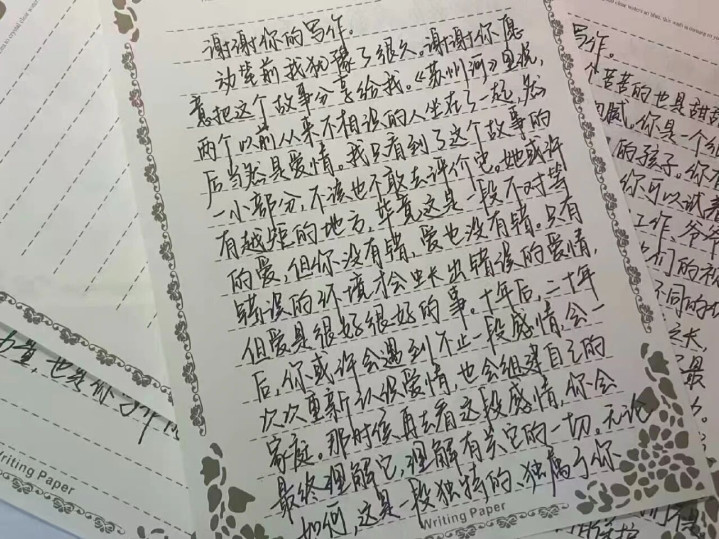 谢谢你的写作。
动笔前我犹豫了很久。谢谢你愿
意把这个故事分享给我。《苏州河》里说，
两个以前从来不相识的人坐在了一起，然
后当然是爱情。我只看到了这个故事的
一小部分，不该也不敢去评价它。她或许
有越矩的地方，毕竟这是一段不对等
的爱，但你没有错，爱也没有错。只有
错误的环境才会生长出错误的爱情，
但爱是很好很好的事。十年后，二十年
后，你或许会遇到不止一段感情，会一
次次重新认识爱情，也会组建自己的
家庭。那时候再去看这段感情，你会
最终理解它，理解有关它的一切。无论
如何，这是一段独特的、独属于你
Writing Paper
写作。
苦苦的也是甜甜
你是一个
的孩子。你
你可以试着
工作、爷爷
们的
不同的
最
也是你
Writing Paper